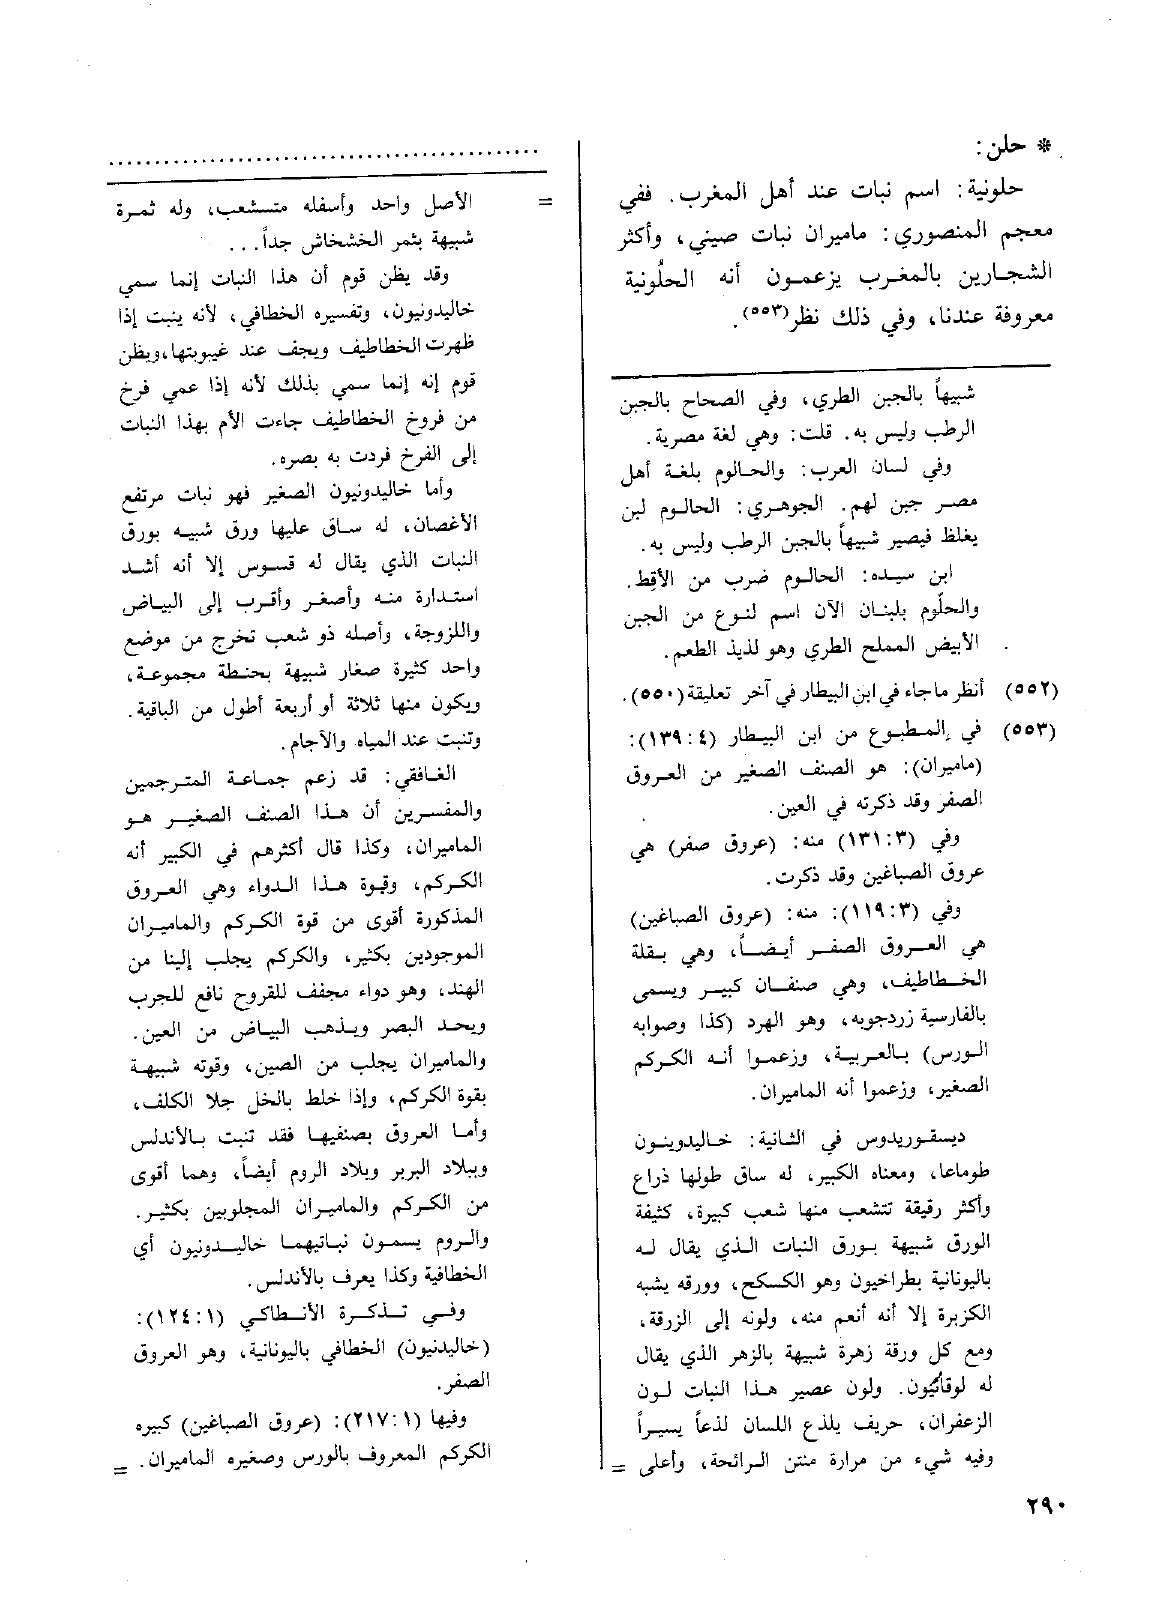 * حلن:
حلونية: اسم نبات عند أهل المغرب. ففي
معجم المنصوري: ماميران نبات صيني، وأكثر
الشجارين بالمغرب يزعمون أنه الحلُونية
معروفة عندنا، وفي ذلك نظر(٥٥٣).
شبيهاً بالجبن الطري، وفي الصحاح بالجبن
الرطب وليس به. قلت: وهي لغة مصرية.
وفي لسان العرب: والحالوم بلغة أهل
مصر جبن لهم. الجوهري: الحالوم لبن
يغلظ فيصير شبيهاً بالجبن الرطب وليس به.
ابن سيده: الحالوم ضرب من الأقط.
والحلّوم بلبنان الآن اسم لنوع من الجبن
الأبيض المملح الطري وهو لذيذ الطعم.
(٥٥٢) أنظر ماجاء في ابن البيطار في آخر تعليقة (٥٥٠).
(٥٥٣) في المطبوع من ابن البيطار (٤: ١٣٩):
(ماميران): هو الصنف الصغير من العروق
الصفر وقد ذكرته في العين.
وفي (٣: ١٣١) منه: (عروق صفر) هي
عروق الصباغين وقد ذكرت.
وفي (٣: ١١٩): منه: (عروق الصباغين)
هي العروق الصفر أيضاً، وهي بقلة
الخطاطيف، وهي صنفان كبير ويسمى
بالفارسية زردجوبه، وهو الهرد (كذا وصوابه
الورس) بالعربية، وزعموا أنه الكركم
الصغير، وزعموا أنه الماميران.
ديسقوريدوس في الثانية: خاليدوينون
طوماعا، ومعناه الكبير، له ساق طولها ذراع
وأكثر رقيقة تتشعب منها شعب كبيرة، كثيفة
الورق شبيهة بورق النبات الذي يقال له
باليونانية بطراخيون وهو الكسكح، وورقه يشبه
الكزبرة إلا أنه أنعم منه، ولونه إلى الزرقة،
ومع كل ورقة زهرة شبيهة بالزهر الذي يقال
له لوقاثيون. ولون عصير هذا النبات لون
الزعفران، حريف يلذع اللسان لذعاً يسيراً
وفيه شيء من مرارة منتن الرائحة، وأعلى =
..........................................
= الأصل واحد وأسفله متشعب، وله ثمرة
شبيهة بثمر الخشخاش جداً...
وقد يظن قوم أن هذا النبات إنما سمي
خاليدونيون، وتفسيره الخطافي، لأنه ينبت إذا
ظهرت الخطاطيف ويجف عند غيبوبتها، ويظن
قوم إنه إنما سمي بذلك لأنه إذا عمي فرخ
من فروخ الخطاطيف جاءت الأم بهذا النبات
إلى الفرخ فردت به بصره.
وأما خاليدونيون الصغير فهو نبات مرتفع
الأغصان، له ساق عليها ورق شبيه بورق
النبات الذي يقال له قسوس إلا أنه أشد
استدارة منه وأصغر وأقرب إلى البياض
واللزوجة، وأصله ذو شعب تخرج من موضع
واحد كثيرة صغار شبيهة بحنطة مجموعة،
ويكون منها ثلاثة أو أربعة أطول من الباقية.
وتنبت عند المياه والآجام.
الغافقي: قد زعم جماعة المترجمين
والمفسرين أن هذا الصنف الصغير هو
الماميران، وكذا قال أكثرهم في الكبير أنه
الكركم، وقوة هذا الدواء وهي العروق
المذكورة أقوى من قوة الكركم والماميران
الموجودين بكثير، والكركم يجلب إلينا من
الهند، وهو دواء مجفف للقروح نافع للجرب
ويحد البصر ويذهب البياض من العين.
والماميران يجلب من الصين، وقوته شبيهة
بقوة الكركم، وإذا خلط بالخل جلا الكلف،
وأما العروق بصنفيها فقد تنبت بالأندلس
وببلاد البربر وبلاد الروم أيضاً، وهما أقوى
من الكركم والماميران المجلوبين بكثير.
والروم يسمون نباتيهما خاليدونيون أي
الخطافية وكذا يعرف بالأندلس.
وفي تذكرة الأنطاكي (١: ١٢٤):
(خاليدنيون) الخطافي باليونانية، وهو العروق
الصفر.
وفيها (١: ٢١٧): (عروق الصباغين) كبيره
الكركم المعروف بالورس وصغيره الماميران. =
٢٩٠